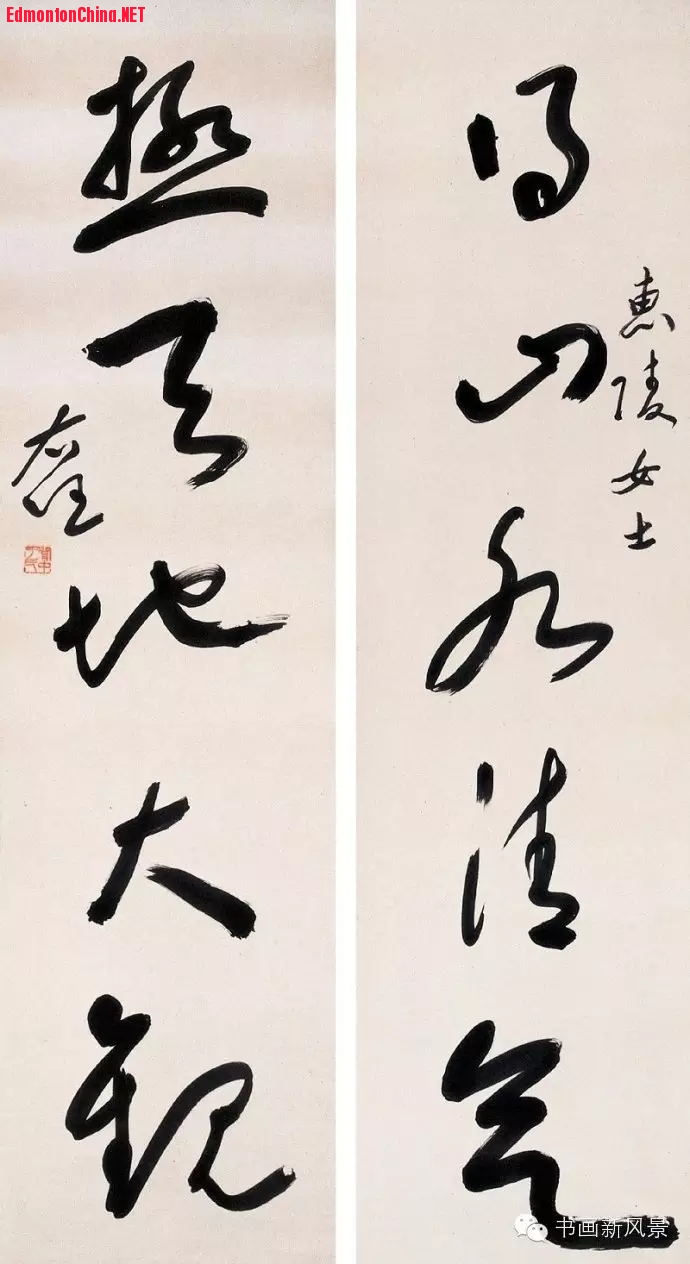 EdmontonChina.NET
得山水清气
惠陵女士
极天地大観
右任
书画新风景